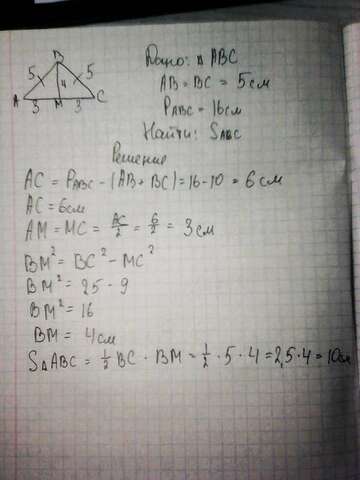 B
5 4 5
A 3 M 3 C
Дано: △ ABC
AB = BC = 5см
PABC = 16см
Найти: SABC
Решение
AC = PABC - (AB + BC) = 16 - 10 = 6 см
AC = 6см
AM = MC = AC/2 = 6/2 = 3 см
BM² = BC² - MC²
BM² = 25 - 9
BM² = 16
BM = 4см
S△ABC = 1/2 BC · BM = 1/2 · 5 · 4 = 2,5 · 4 = 10см